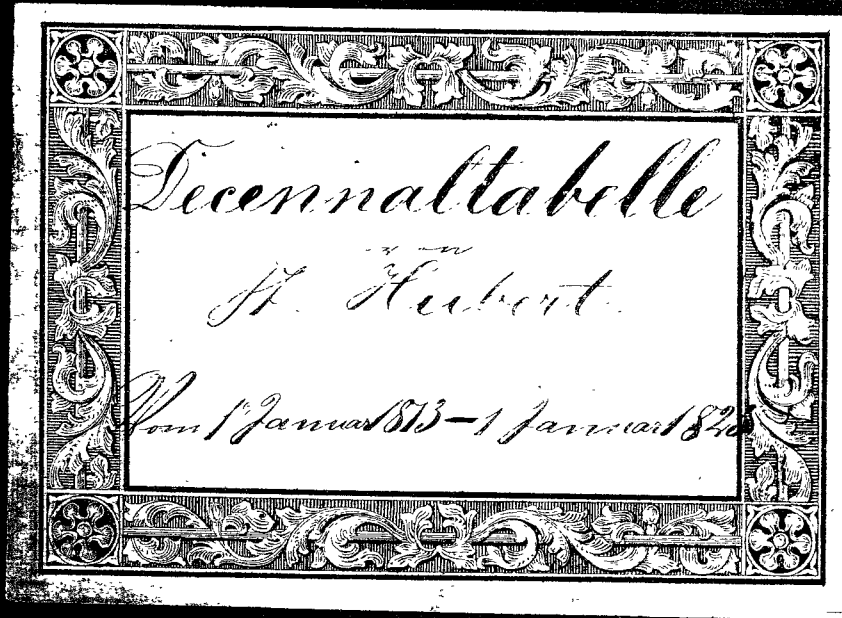 Decennaltabelle
von
St. Hubert.
Vom 1 Januar 1813 – 1 Januar 1823